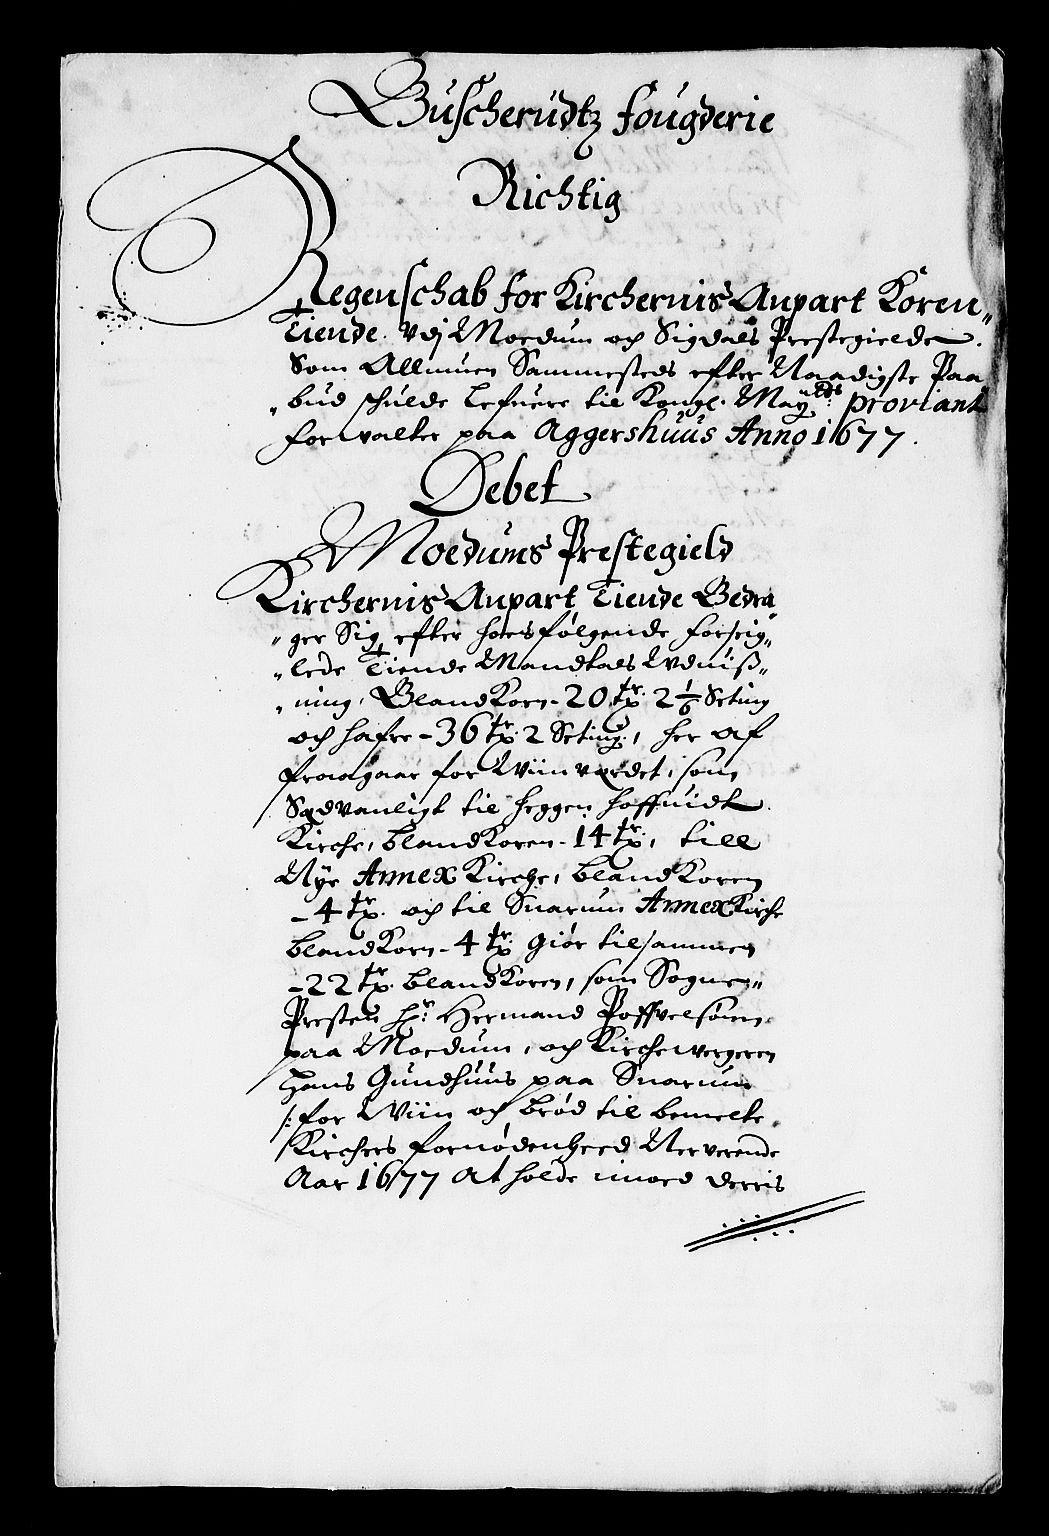 Buscherudtz fougderie
Richtig
Regenschab for Kirchernis Anpart Koren„
Tiende. Vdj Moedum och Sigdals Prestegielde.
Som Allmuen Sammesteds efter Naadigste Paa
„bud schulde Lefuere til Kongl: May: proviant
forvalter paa Aggershuus Anno 1677.
Debet
Moedums Prestegield
Kirchernis Anpart Tiende Bedra„
„ger Sig efter hoesfølgende forseig„
„lede Tiende Mandtals Vdviiß„
„ning, Bland Korn - 20 tr. 2 1/6 Seting
och hafre - 36 tr. 2 Seting:, her af
fraagaar for Wiin verdet, som
Sædvanligt til Heggen hoffuidt
Kirche, bland Koren - 14 tr:, till
Nye Annex Kirche, bland Koren
- 4 tr. och til Snarum Annex Kirche
bland Korn - 4 tr. giør tilsammen
- 22 tr. bland Koren, som Sogne„
Presten hr: Hermand Poffvelsøen
paa Moedum, och Kirchewergeren
Hans Gundhuus paa Snarum
/: for Wiin och brød til bemelte
Kirchers fornødenheed Nerverende
Aar 1677 At holde imod derris